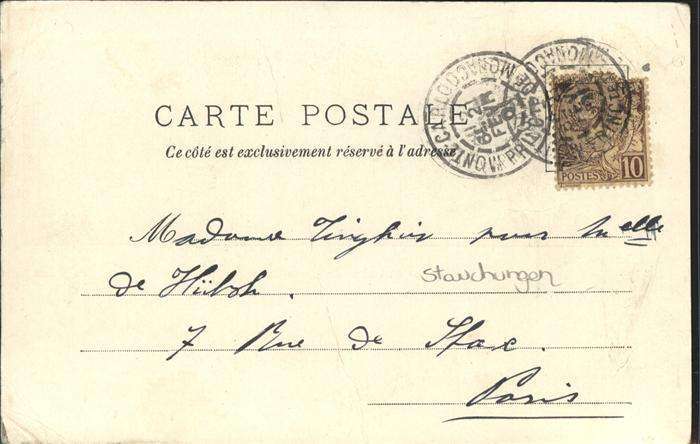 CARTE POSTALE
Ce côté est exclusivement réservé à l'adresse
MONTE CARLO PRINCIPAUTÉ DE MONACO
POSTES 10
Madame pour Melle
de
Stauchungen
7 Rue de Sfax.
Paris